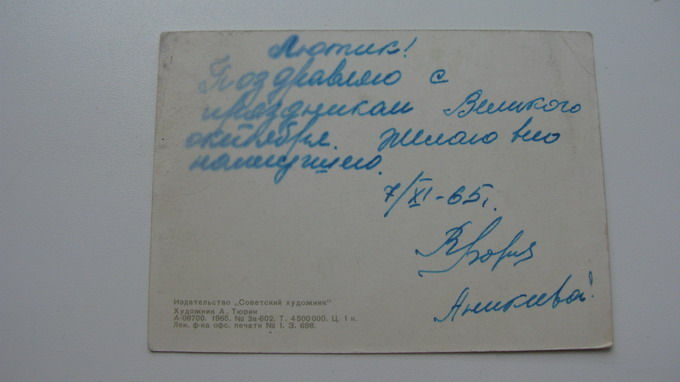 Лютик!
Поздравляю с
праздникам Великого
октября. Желаю вно
наилучшего.
7/XI-65г.
Аникиева!
Издательство „Советский художник"
Художник А. Тюрин
А-08700. 1965. № 3а-602. Т. 4 500 000. Ц. 1 к.
Лен. ф-ка офс. печати № 1. З. 698.